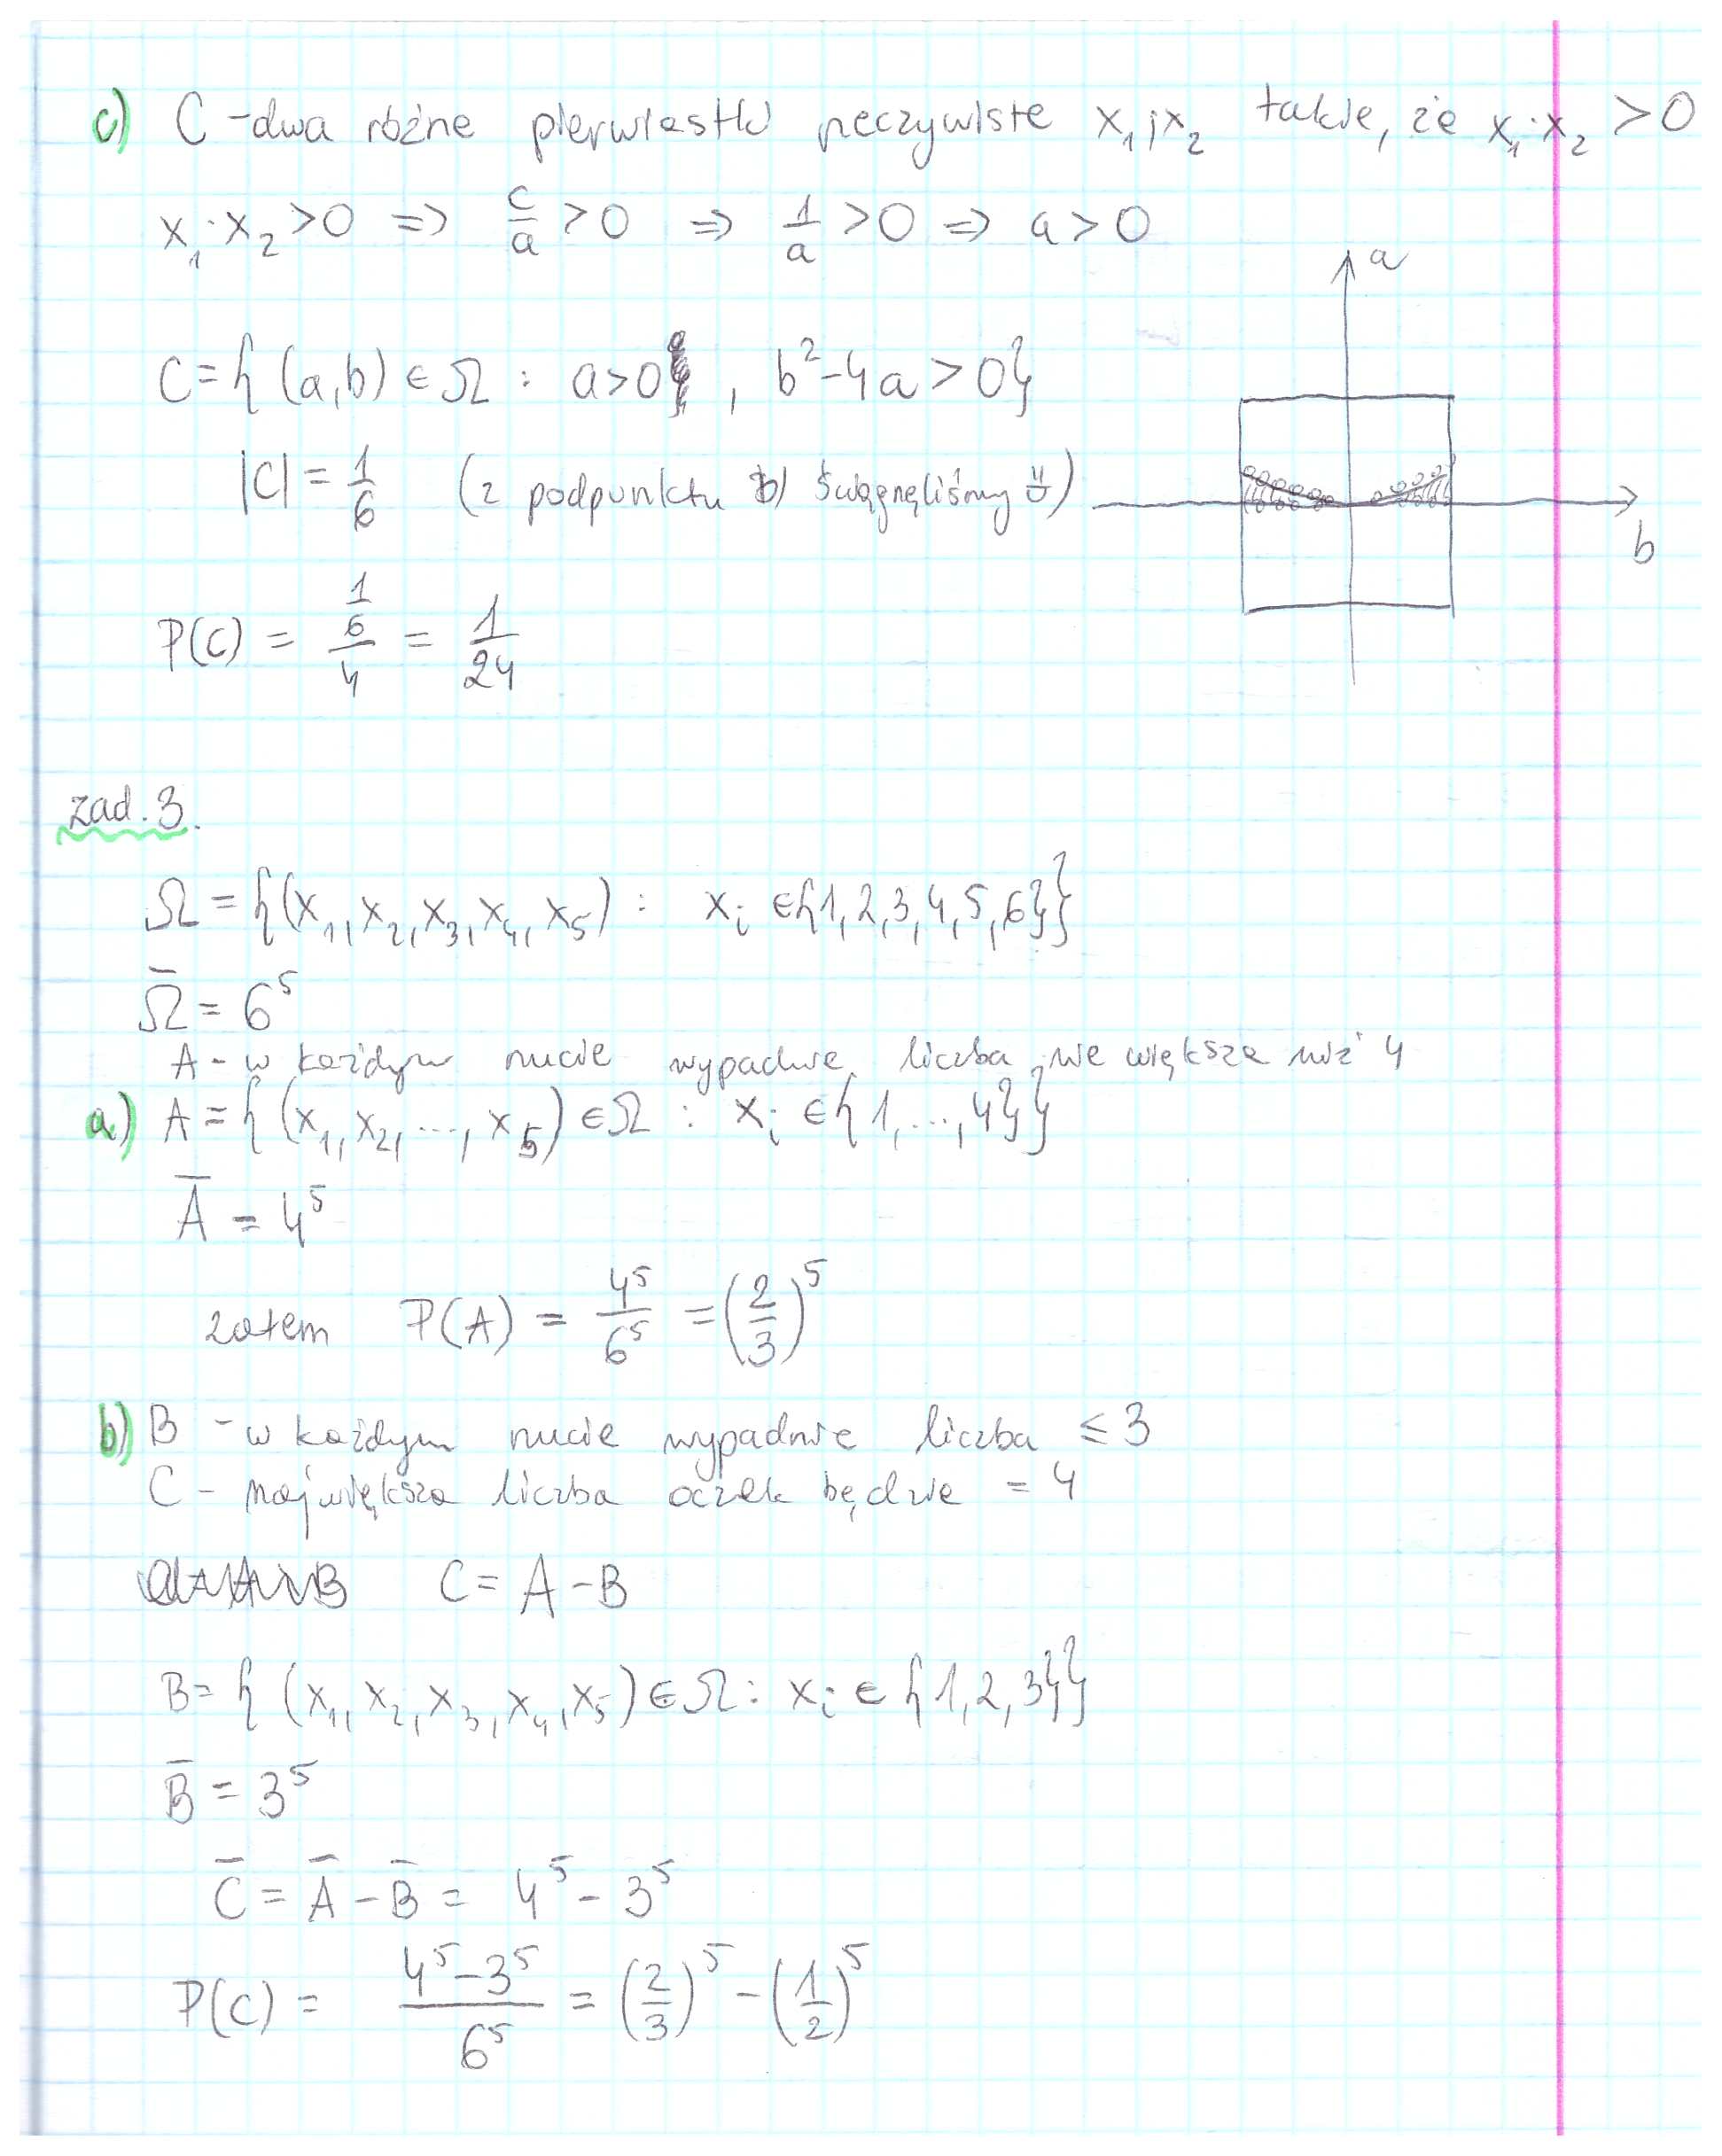 c) C - dwa różne pierwiastki rzeczywiste x₁ i x₂ takie, że x₁·x₂ > 0
x₁·x₂ > 0 ⇒ c/a > 0 ⇒ 1/a > 0 ⇒ a > 0
a
C = { (a,b) ∈ Ω : a > 0 , b² - 4a > 0}
|C| = 1/6 (z podpunktu b) ściągnęliśmy)
b
P(C) = (1/6)/4 = 1/24
zad. 3.
Ω = {(x₁, x₂, x₃, x₄, x₅) : xᵢ ∈ {1,2,3,4,5,6}}
Ω̄ = 6⁵
A - w każdym rzucie wypadnie liczba nie większa niż 4
a) A = { (x₁, x₂, ..., x₅) ∈ Ω : xᵢ ∈ {1,...,4}}
Ā = 4⁵
zatem P(A) = 4⁵/6⁵ = (2/3)⁵
b) B - w każdym rzucie wypadnie liczba ≤ 3
C - największa liczba oczek będzie = 4
C = A - B
B = { (x₁, x₂, x₃, x₄, x₅) ∈ Ω : xᵢ ∈ {1,2,3}}
B̄ = 3⁵
C̄ = Ā - B̄ = 4⁵ - 3⁵
P(C) = (4⁵ - 3⁵)/6⁵ = (2/3)⁵ - (1/2)⁵